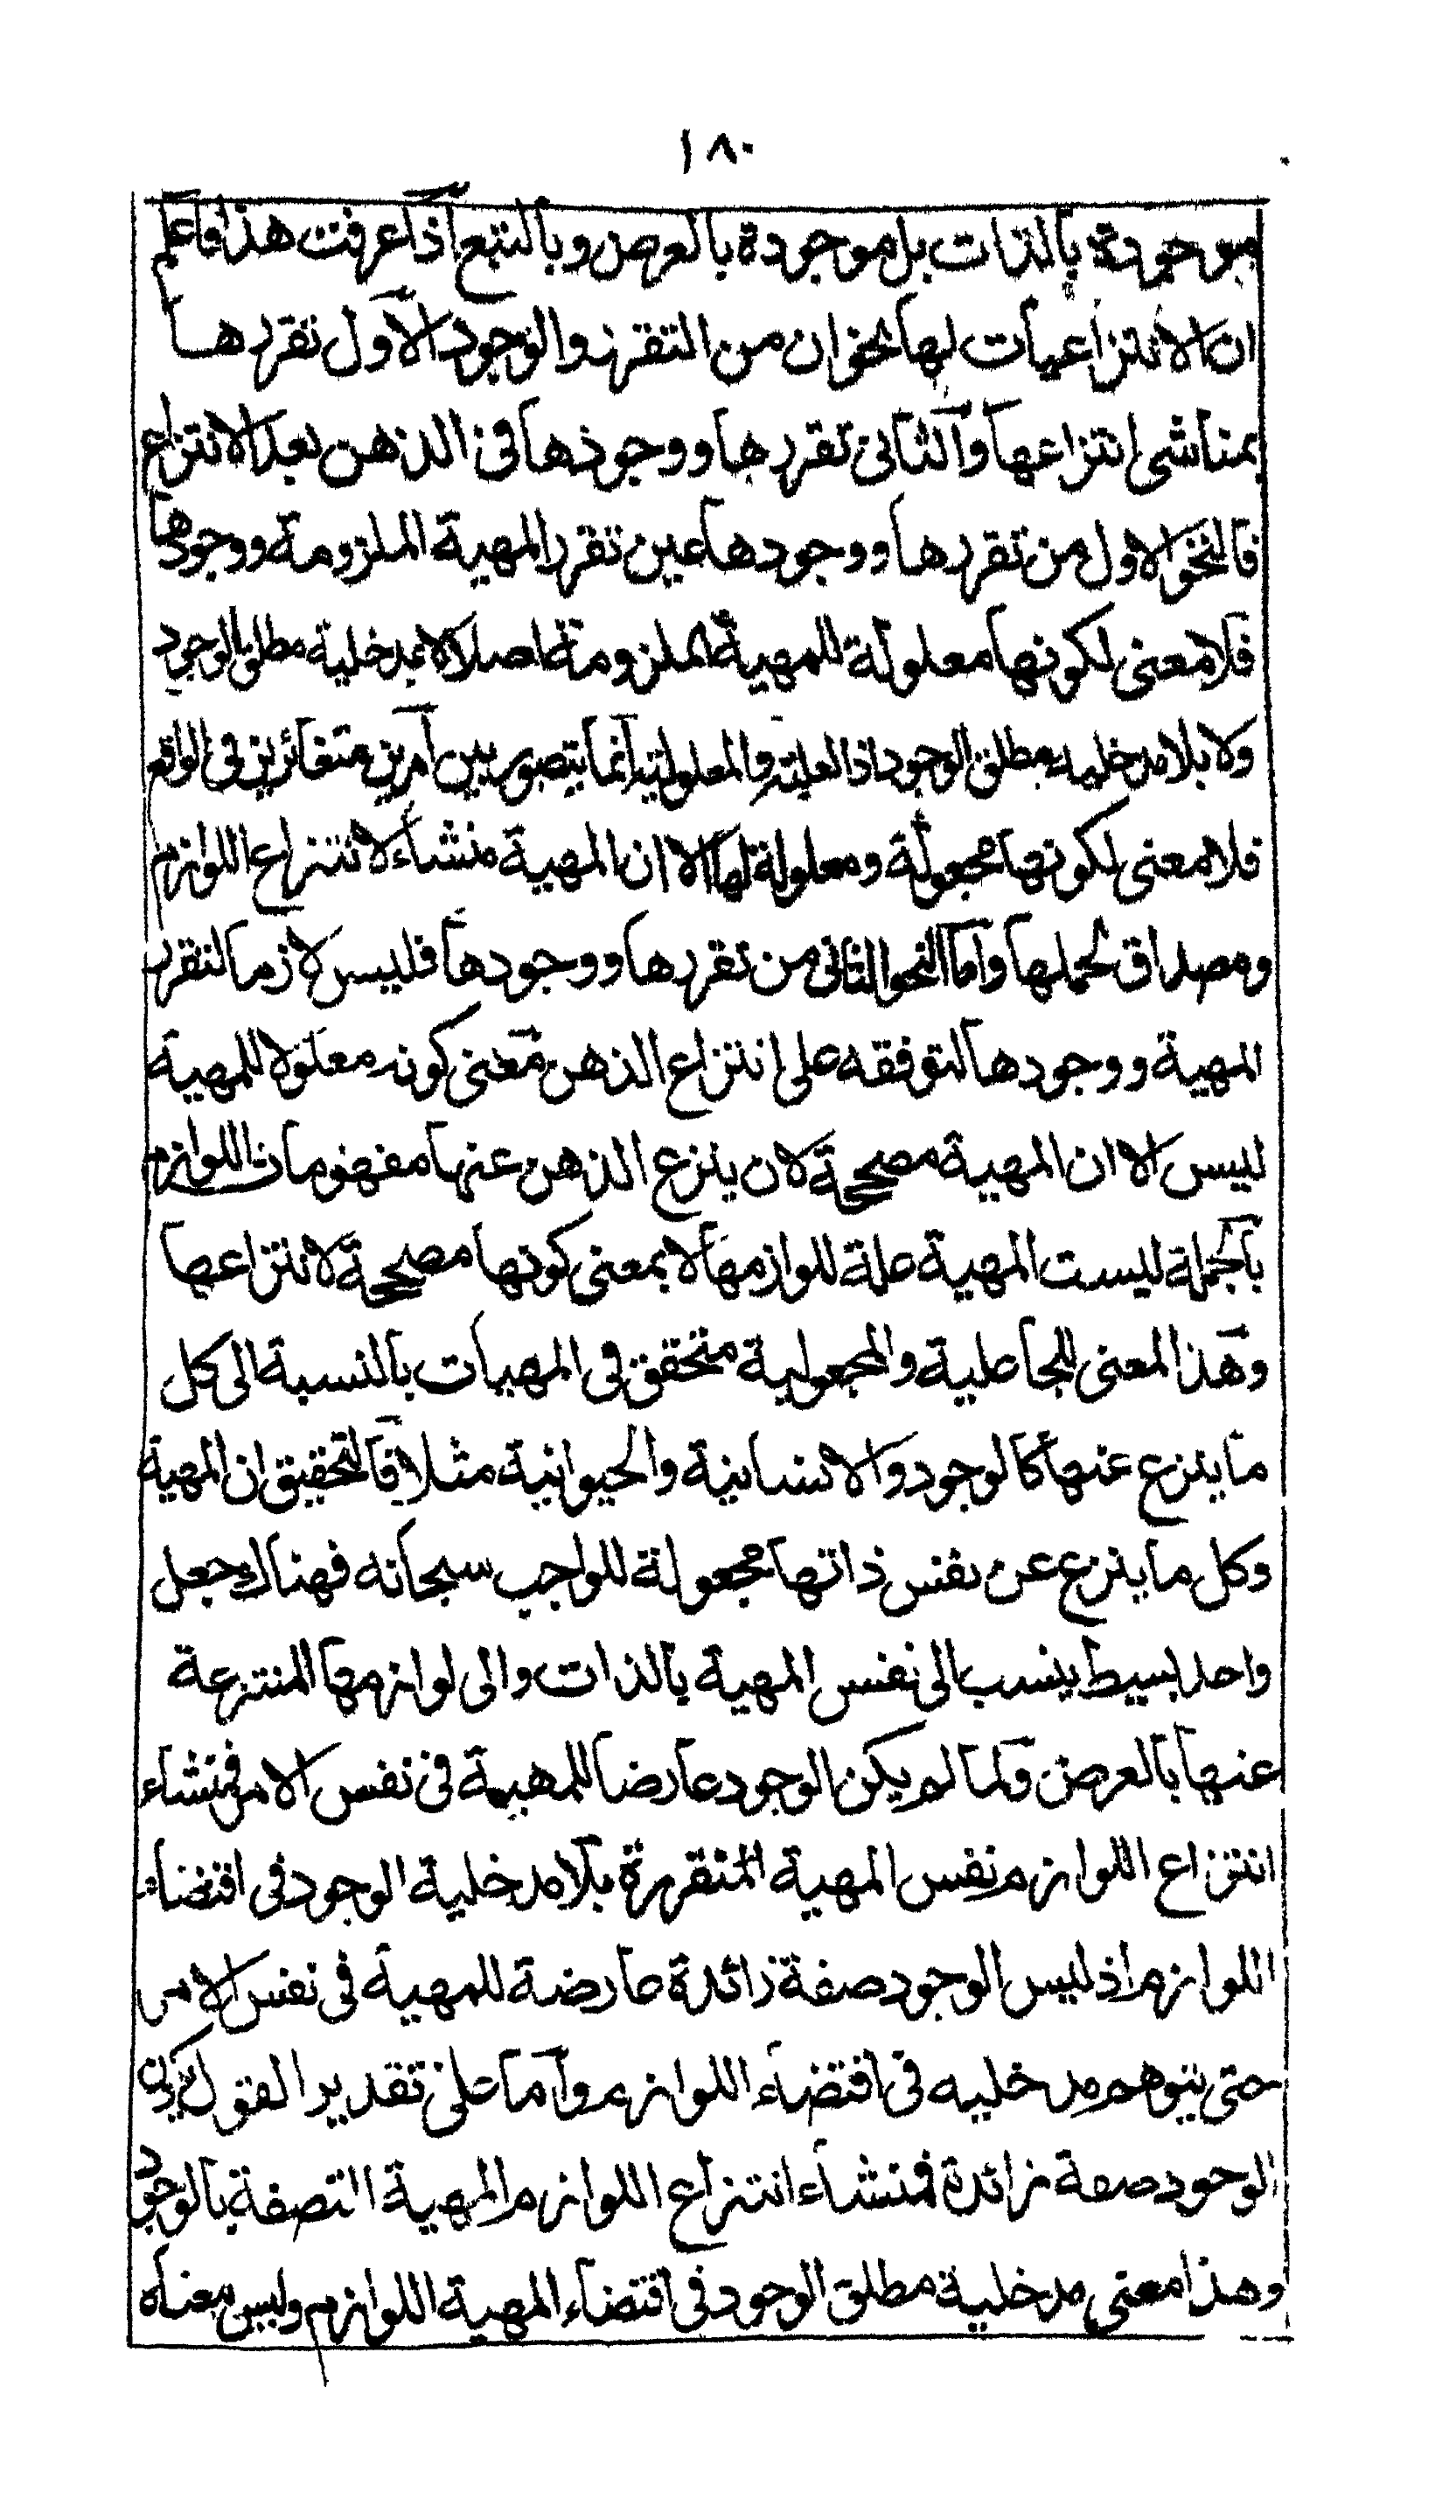 ١٨٠
موجودة بالذات بل موجودة بالعرض وبالتبع اذا عرفت هذا فاعلم
ان الانتزاعيات لها نحوان من التقرر والوجود الاول تقررها
بمناشى انتزاعها والثانى تقررها ووجودها فى الذهن بعد الانتزاع
فالنحو الاول من تقررها ووجودها عين تقرر المهية الملزومة ووجودها
فلا معنى لكونها معلولة للمهية الملزومة اصلا لا بمدخلية مطلق الوجود
ولا بلا مدخلية مطلق الوجود اذ العلية والمعلولية انما يتصور بين امرين متغائرين فى الواقع
فلا معنى لكونها مجعولة ومعلولة لها الا ان المهية منشاء لانتزاع اللوازم
ومصداق لحملها واما النحو الثانى من تقررها ووجودها فليس لازما لتقرر
المهية ووجودها لتوقفه على انتزاع الذهن فمعنى كونه معلولا للمهية
ليس الا ان المهية مصححة لان ينزع الذهن عنها مفهومات اللوازم
بالجملة ليست المهية علة للوازمها الا بمعنى كونها مصححة لانتزاعها
وهذا المعنى للجاعلية والمجعولية متحقق فى المهيات بالنسبة الى كل
ما ينزع عنها كالوجود والانسانية والحيوانية مثلا فالتحقيق ان المهية
وكل ما ينزع عن نفس ذاتها مجعولة للواجب سبحانه فهناك جعل
واحد بسيط ينسب الى نفس المهية بالذات والى لوازمها المنتزعة
عنها بالعرض ولما لم يكن الوجود عارضا للمهية فى نفس الامر فمنشاء
انتزاع اللوازم نفس المهية المتقررة بلا مدخلية الوجود فى اقتضاء
اللوازم اذ ليس الوجود صفة زائدة عارضة للمهية فى نفس الامر
حتى يتوهم مدخليه فى اقتضاء اللوازم واما على تقدير القول بكون
الوجود صفة زائدة فمنشاء انتزاع اللوازم المهية المتصفة بالوجود
وهذا معنى مدخلية مطلق الوجود فى اقتضاء المهية اللوازم وليس معناه